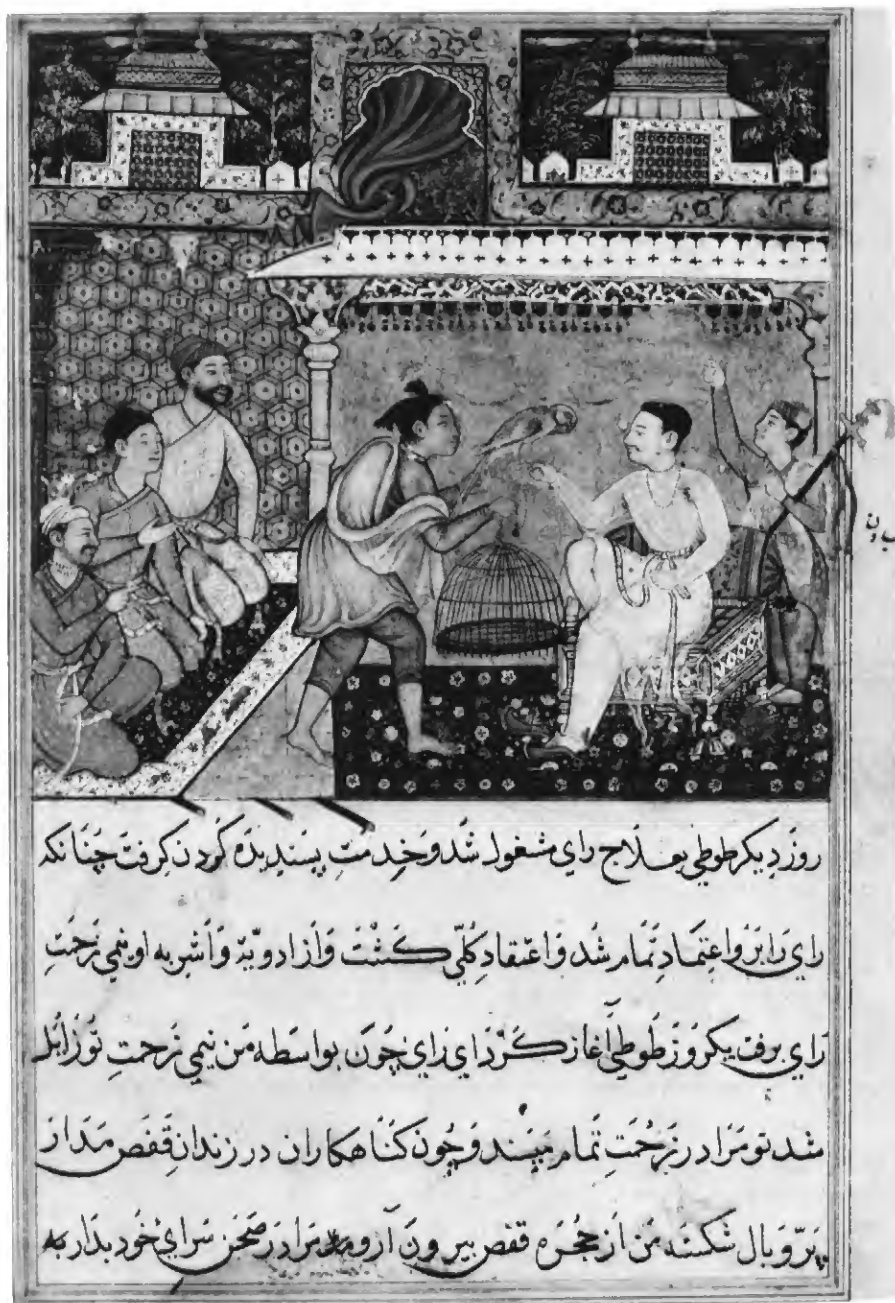 روز دیکر طوطی بعلاج رای مشغول شد و خدمت پسندیده کردن کرفت چنانکه
رای را برو اعتماد تمام شد و اعتقاد کلّی کشت و از ادویّه و اشربه او نیمی زحمت
رای برفت یکروز طوطی آغاز کرد ای رای چون بواسطه من نیمی زحمت تو زایل
شد تو مرا در زحمت تمام مپسند و چون کناهکاران در زندان قفص مدار
پرّ و بال شکسته من از حجره قفص بیرون آر و مرا در صحن سرای خود بدار به